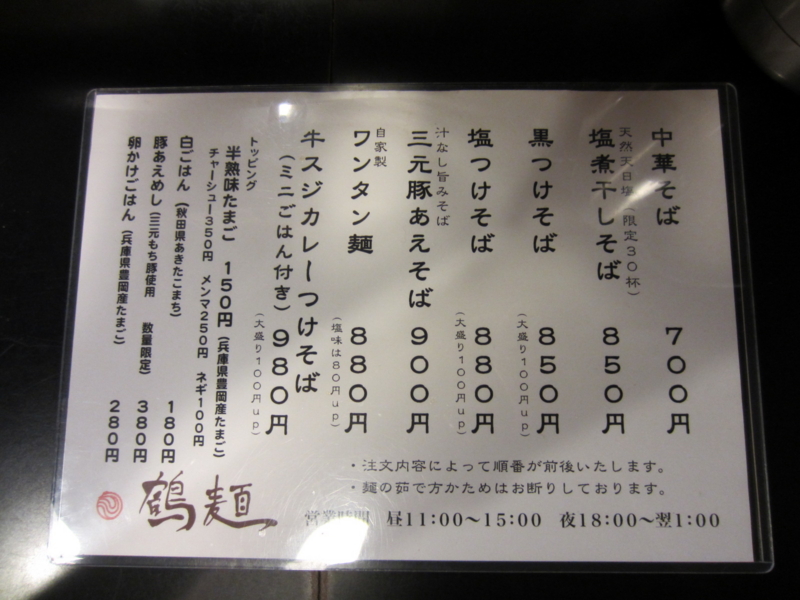 中華そば 700円
天然天日塩(限定30杯)
塩煮干しそば 850円
黒つけそば 850円
(大盛り100円up)
塩つけそば 880円
(大盛り100円up)
汁なし旨みそば
三元豚あえそば 900円
自家製
ワンタン麺 880円
(塩味は80円up)
牛スジカレーつけそば
(ミニごはん付き) 980円
(大盛り100円up)
トッピング
半熟味たまご 150円(兵庫県豊岡産たまご)
チャーシュー350円 メンマ250円 ネギ100円
白ごはん(秋田県あきたこまち) 180円
豚あえめし(三元もち豚使用 数量限定) 380円
卵かけごはん(兵庫県豊岡産たまご) 280円
・注文内容によって順番が前後いたします。
・麺の茹で方かためはお断りしております。
営業時間 昼11:00〜15:00 夜18:00〜翌1:00
鶴麺